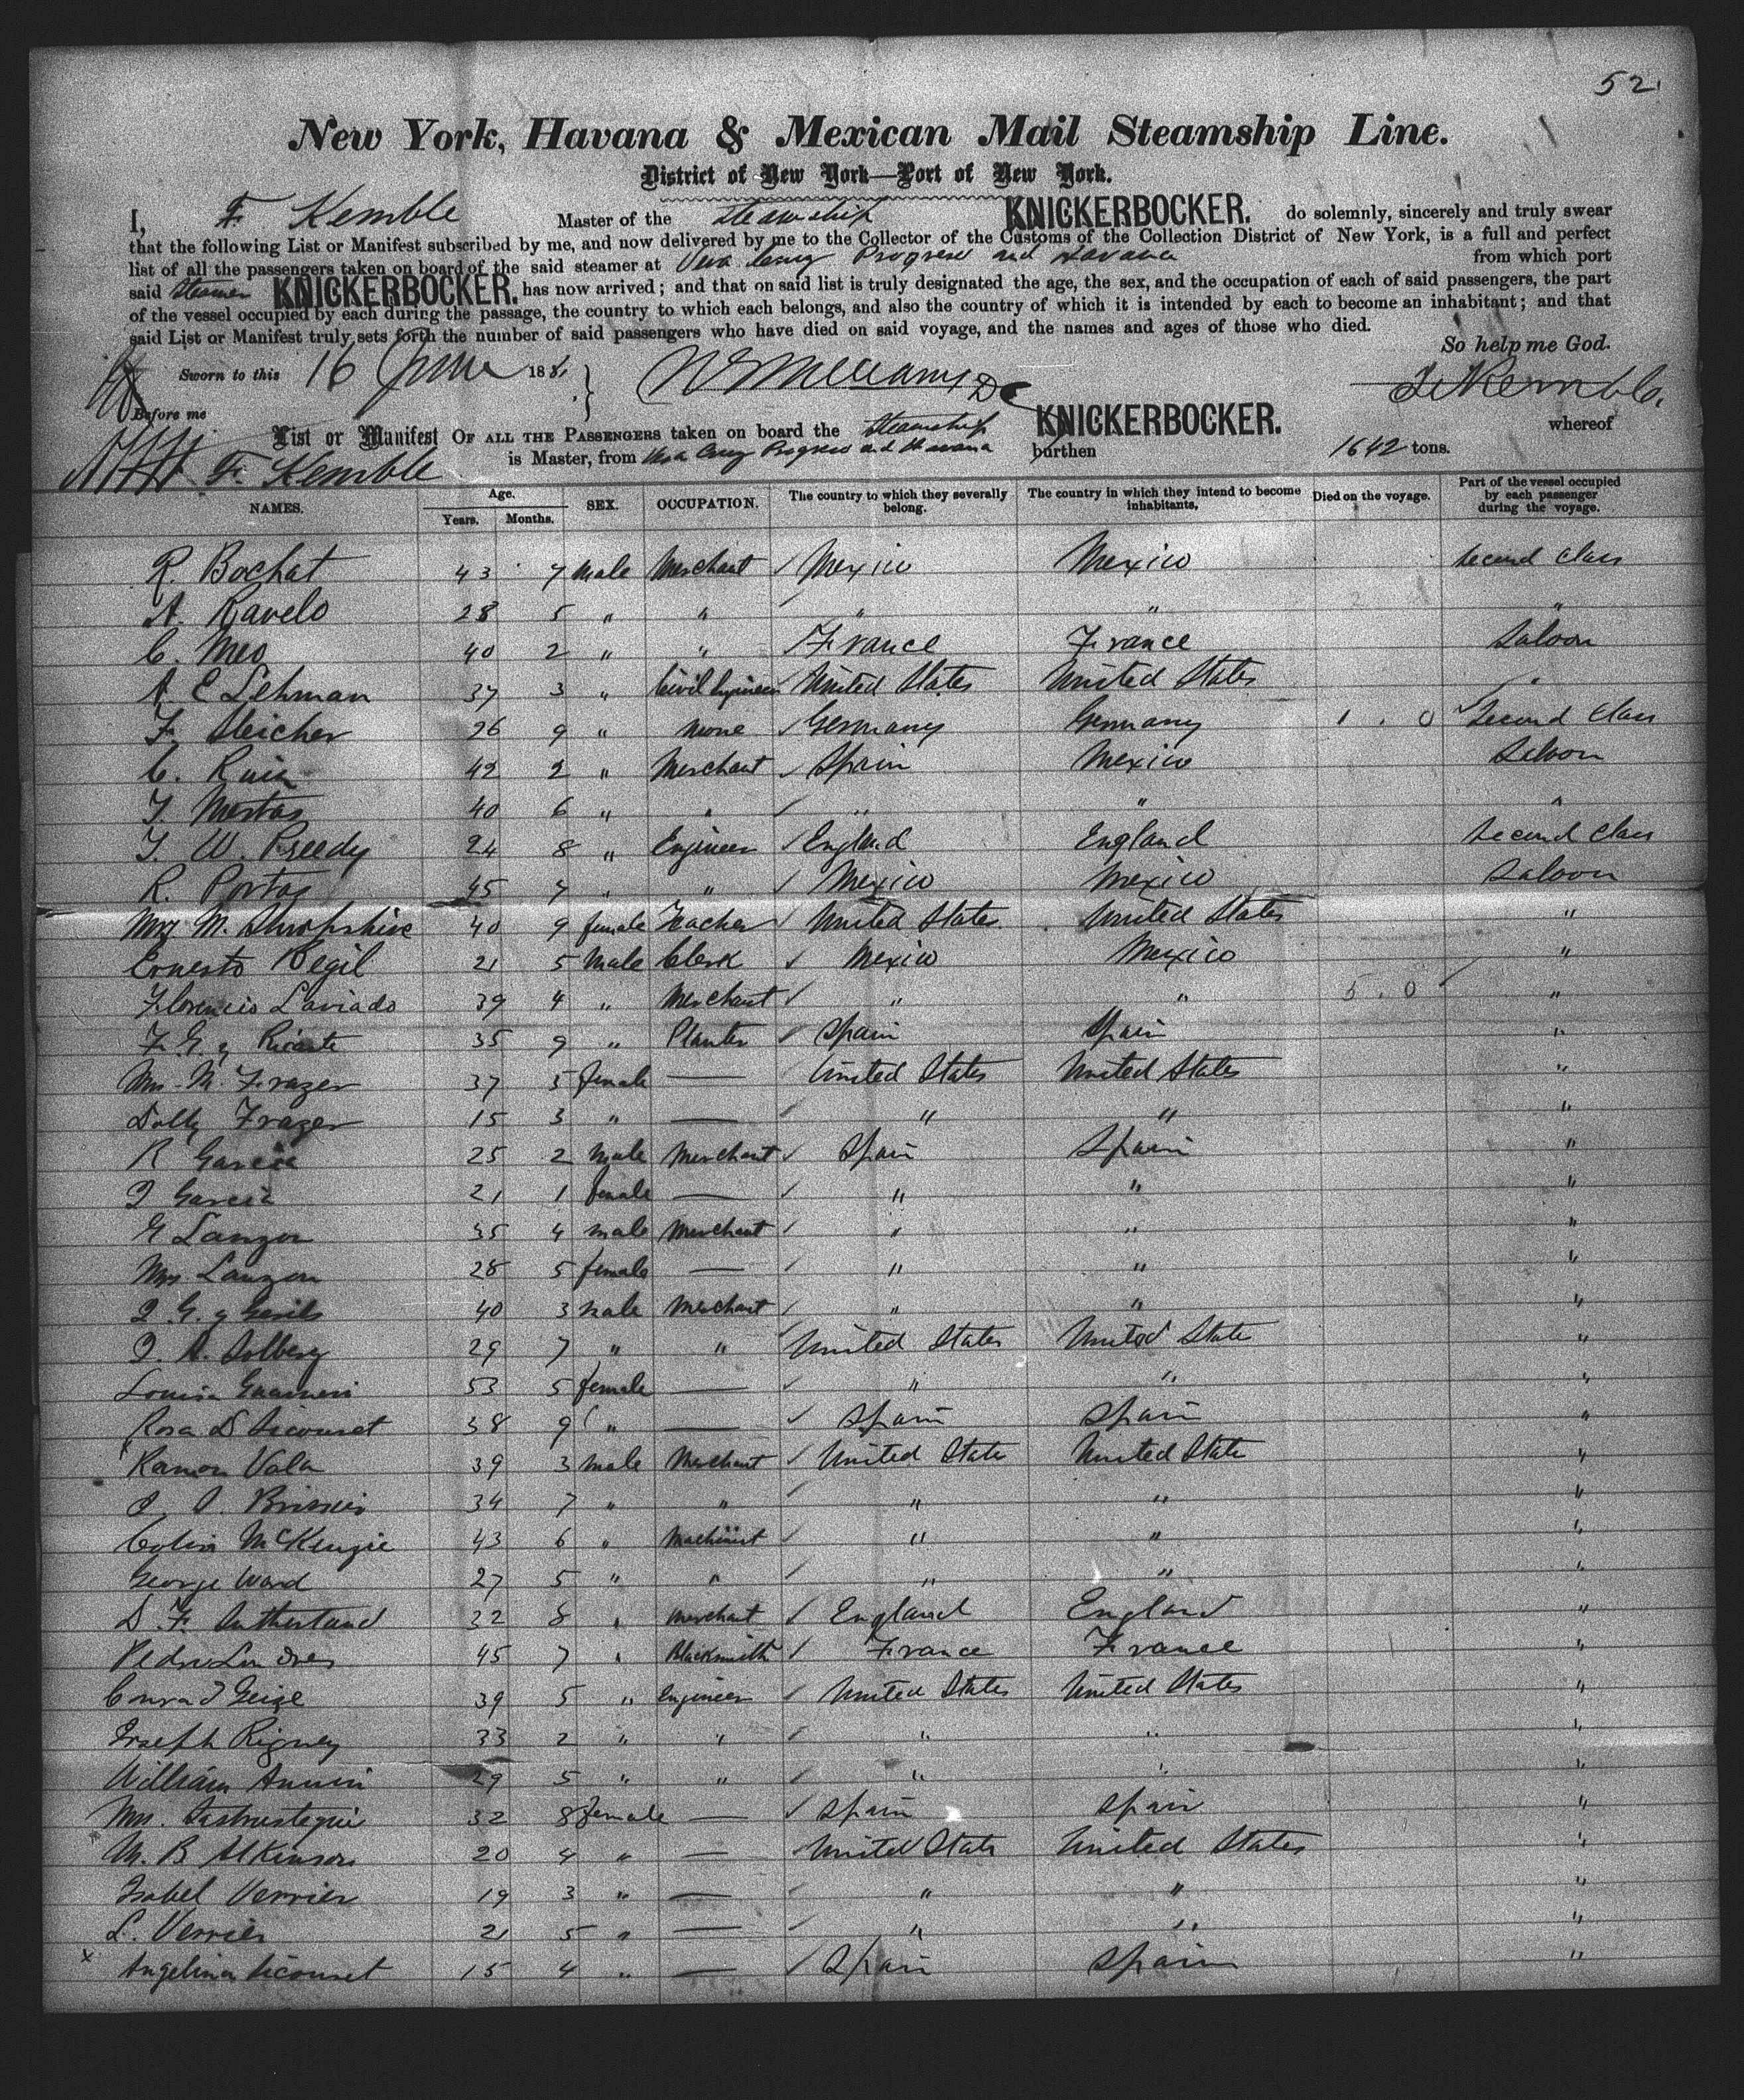 52.
New York, Havana & Mexican Mail Steamship Line.
District of New York—Port of New York.
I, F. Kemble Master of the Steamship KNICKERBOCKER. do solemnly, sincerely and truly swear
that the following List or Manifest subscribed by me, and now delivered by me to the Collector of the Customs of the Collection District of New York, is a full and perfect
list of all the passengers taken on board of the said steamer at Vera Cruz Progreso and Havana from which port
said Steamer KNICKERBOCKER. has now arrived; and that on said list is truly designated the age, the sex, and the occupation of each of said passengers, the part
of the vessel occupied by each during the passage, the country to which each belongs, and also the country of which it is intended by each to become an inhabitant; and that
said List or Manifest truly sets forth the number of said passengers who have died on said voyage, and the names and ages of those who died.
So help me God.
Sworn to this 16 June 188
F. Kemble
Before me
List or Manifest OF ALL THE PASSENGERS taken on board the Steamship KNICKERBOCKER. whereof
F. Kemble is Master, from Vera Cruz Progreso and Havana burthen 1642 tons.
NAMES. Age. Years. Months. SEX. OCCUPATION. The country to which they severally belong. The country in which they intend to become inhabitants, Died on the voyage. Part of the vessel occupied by each passenger during the voyage.
R. Bochat 43 7 male Merchant Mexico Mexico Second Class
A. Ravelo 28 5 " " " " "
C. Meo 40 2 " " France France Saloon
A E Lehman 37 3 " Civil Engineer United States United States "
F. Sleicher 26 9 " none Germany Germany 1 . 0 Second Class
C. Ruiz 42 2 " Merchant Spain Mexico Saloon
Mestas 40 6 " " " " "
W. Preedy 24 8 " Engineer England England Second Class
R. Portas 45 7 " " Mexico Mexico Saloon
M. Shropshire 40 9 female Teacher United States United States "
Ernesto Regil 21 5 Male Clerk Mexico Mexico "
Florencio Laviado 39 4 " Merchant " " 5 . 0 "
F. G. y Ricarte 35 9 " Planter Spain Spain "
Mrs. M. Frazer 37 5 female — United States United States "
Dolly Frazer 15 3 " — " " "
R Garcia 25 2 male Merchant Spain Spain "
Garcia 21 1 female — " " "
Lanzon 35 4 male Merchant " " "
Mrs Lanzon 28 5 female — " " "
G. y 40 3 male Merchant " " "
A. Solberg 29 7 " " United States United State "
Louisa 53 5 female — " " "
Rosa D Sicouret 38 9 " — Spain Spain "
Ramon Vala 39 3 male Merchant United State United State "
34 7 " " " " "
Colin McKenzie 43 6 " Machinist " " "
George Ward 27 5 " " " " "
D. F. Sutherland 22 8 " Merchant England England "
Pedro 45 7 " Blacksmith France France "
Conrad Geize 39 5 " Engineer United States United States "
Joseph Rigney 33 2 " " " " "
William 29 5 " " " " "
Mrs. 32 8 female — Spain Spain "
M. B Atkinson 20 4 " — United State United States "
Isabel Verrier 19 3 " — " " "
L. Verrier 21 5 " — " " "
x Angelina Sicouret 15 4 " — Spain Spain "